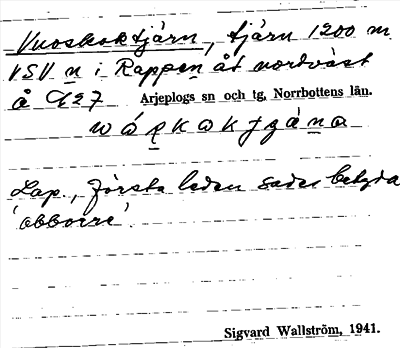 Vuoskoktjärn, tjärn 1200 m
VSV n i Rappen åt nordväst
å 427 Arjeplogs sn och tg, Norrbottens län.
Lap., första leden sades betyda
'abborre'.
Sigvard Wallström, 1941.